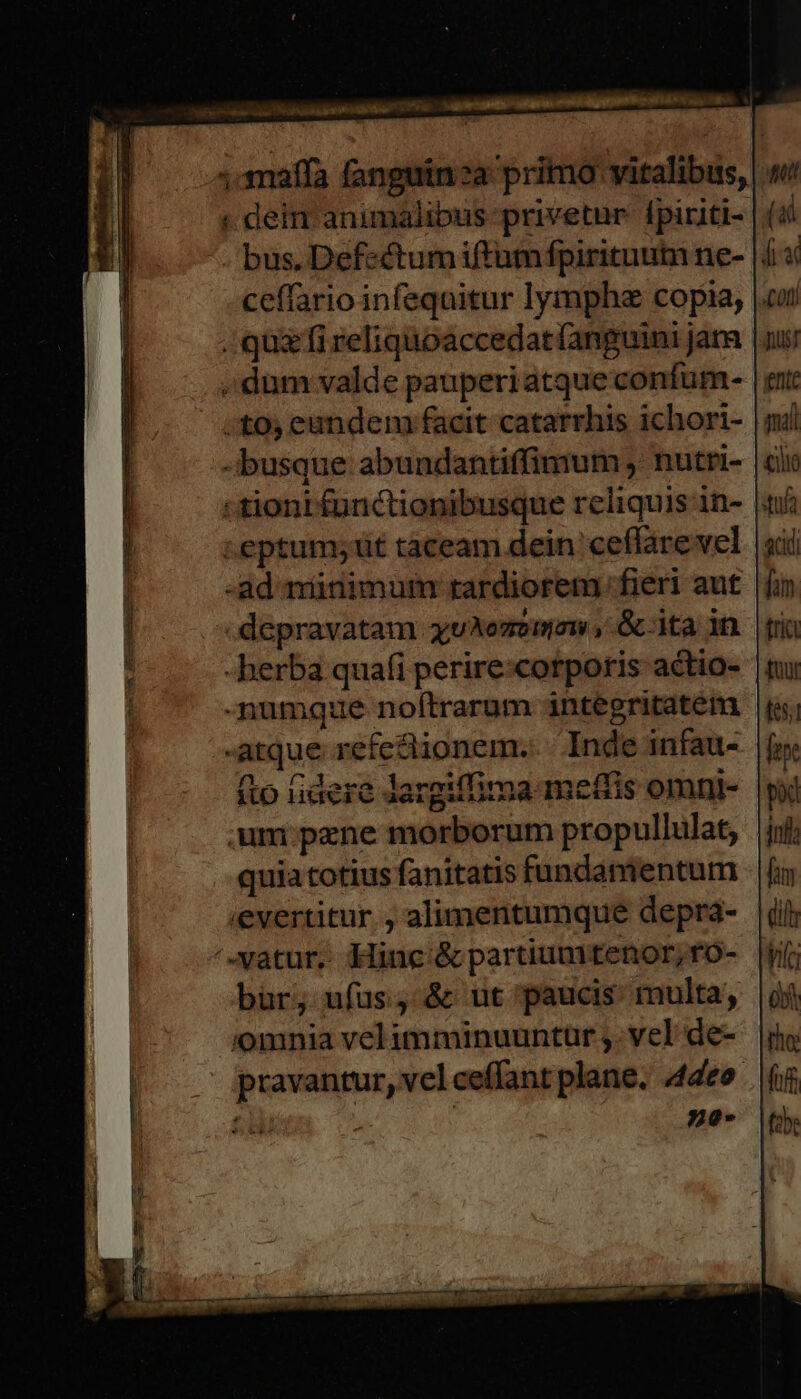 maſſa ſanguinea primo vitalibus,
dein animalibus privetur ſpiriti-
bus. Defectum iſtum ſpirituum ne-
ceſſario inſequitur lymphæ copia,
quæ ſi reliquo accedat ſanguini jam
dum valde pauperi atque conſum-
to, eundem facit catarrhis ichori-
busque abundantiſſimum, nutri-
tioni functionibusque reliquis in-
eptum; ut taceam dein ceſſare vel
ad minimum tardiorem fieri aut
depravatam χυλοποίησιν, & ita in
herba quaſi perire corporis actio-
numque noſtrarum integritatem
atque refectionem. Inde infau-
ſto ſidere largiſſima meſſis omni-
um pæne morborum propullulat,
quia totius ſanitatis fundamentum
evertitur, alimentumque depra-
vatur. Hinc & partium tenor, ro-
bur, uſus, & ut paucis multa,
omnia vel imminuuntur, vel de-
pravantur, vel ceſſant plane. Adeo
ne-